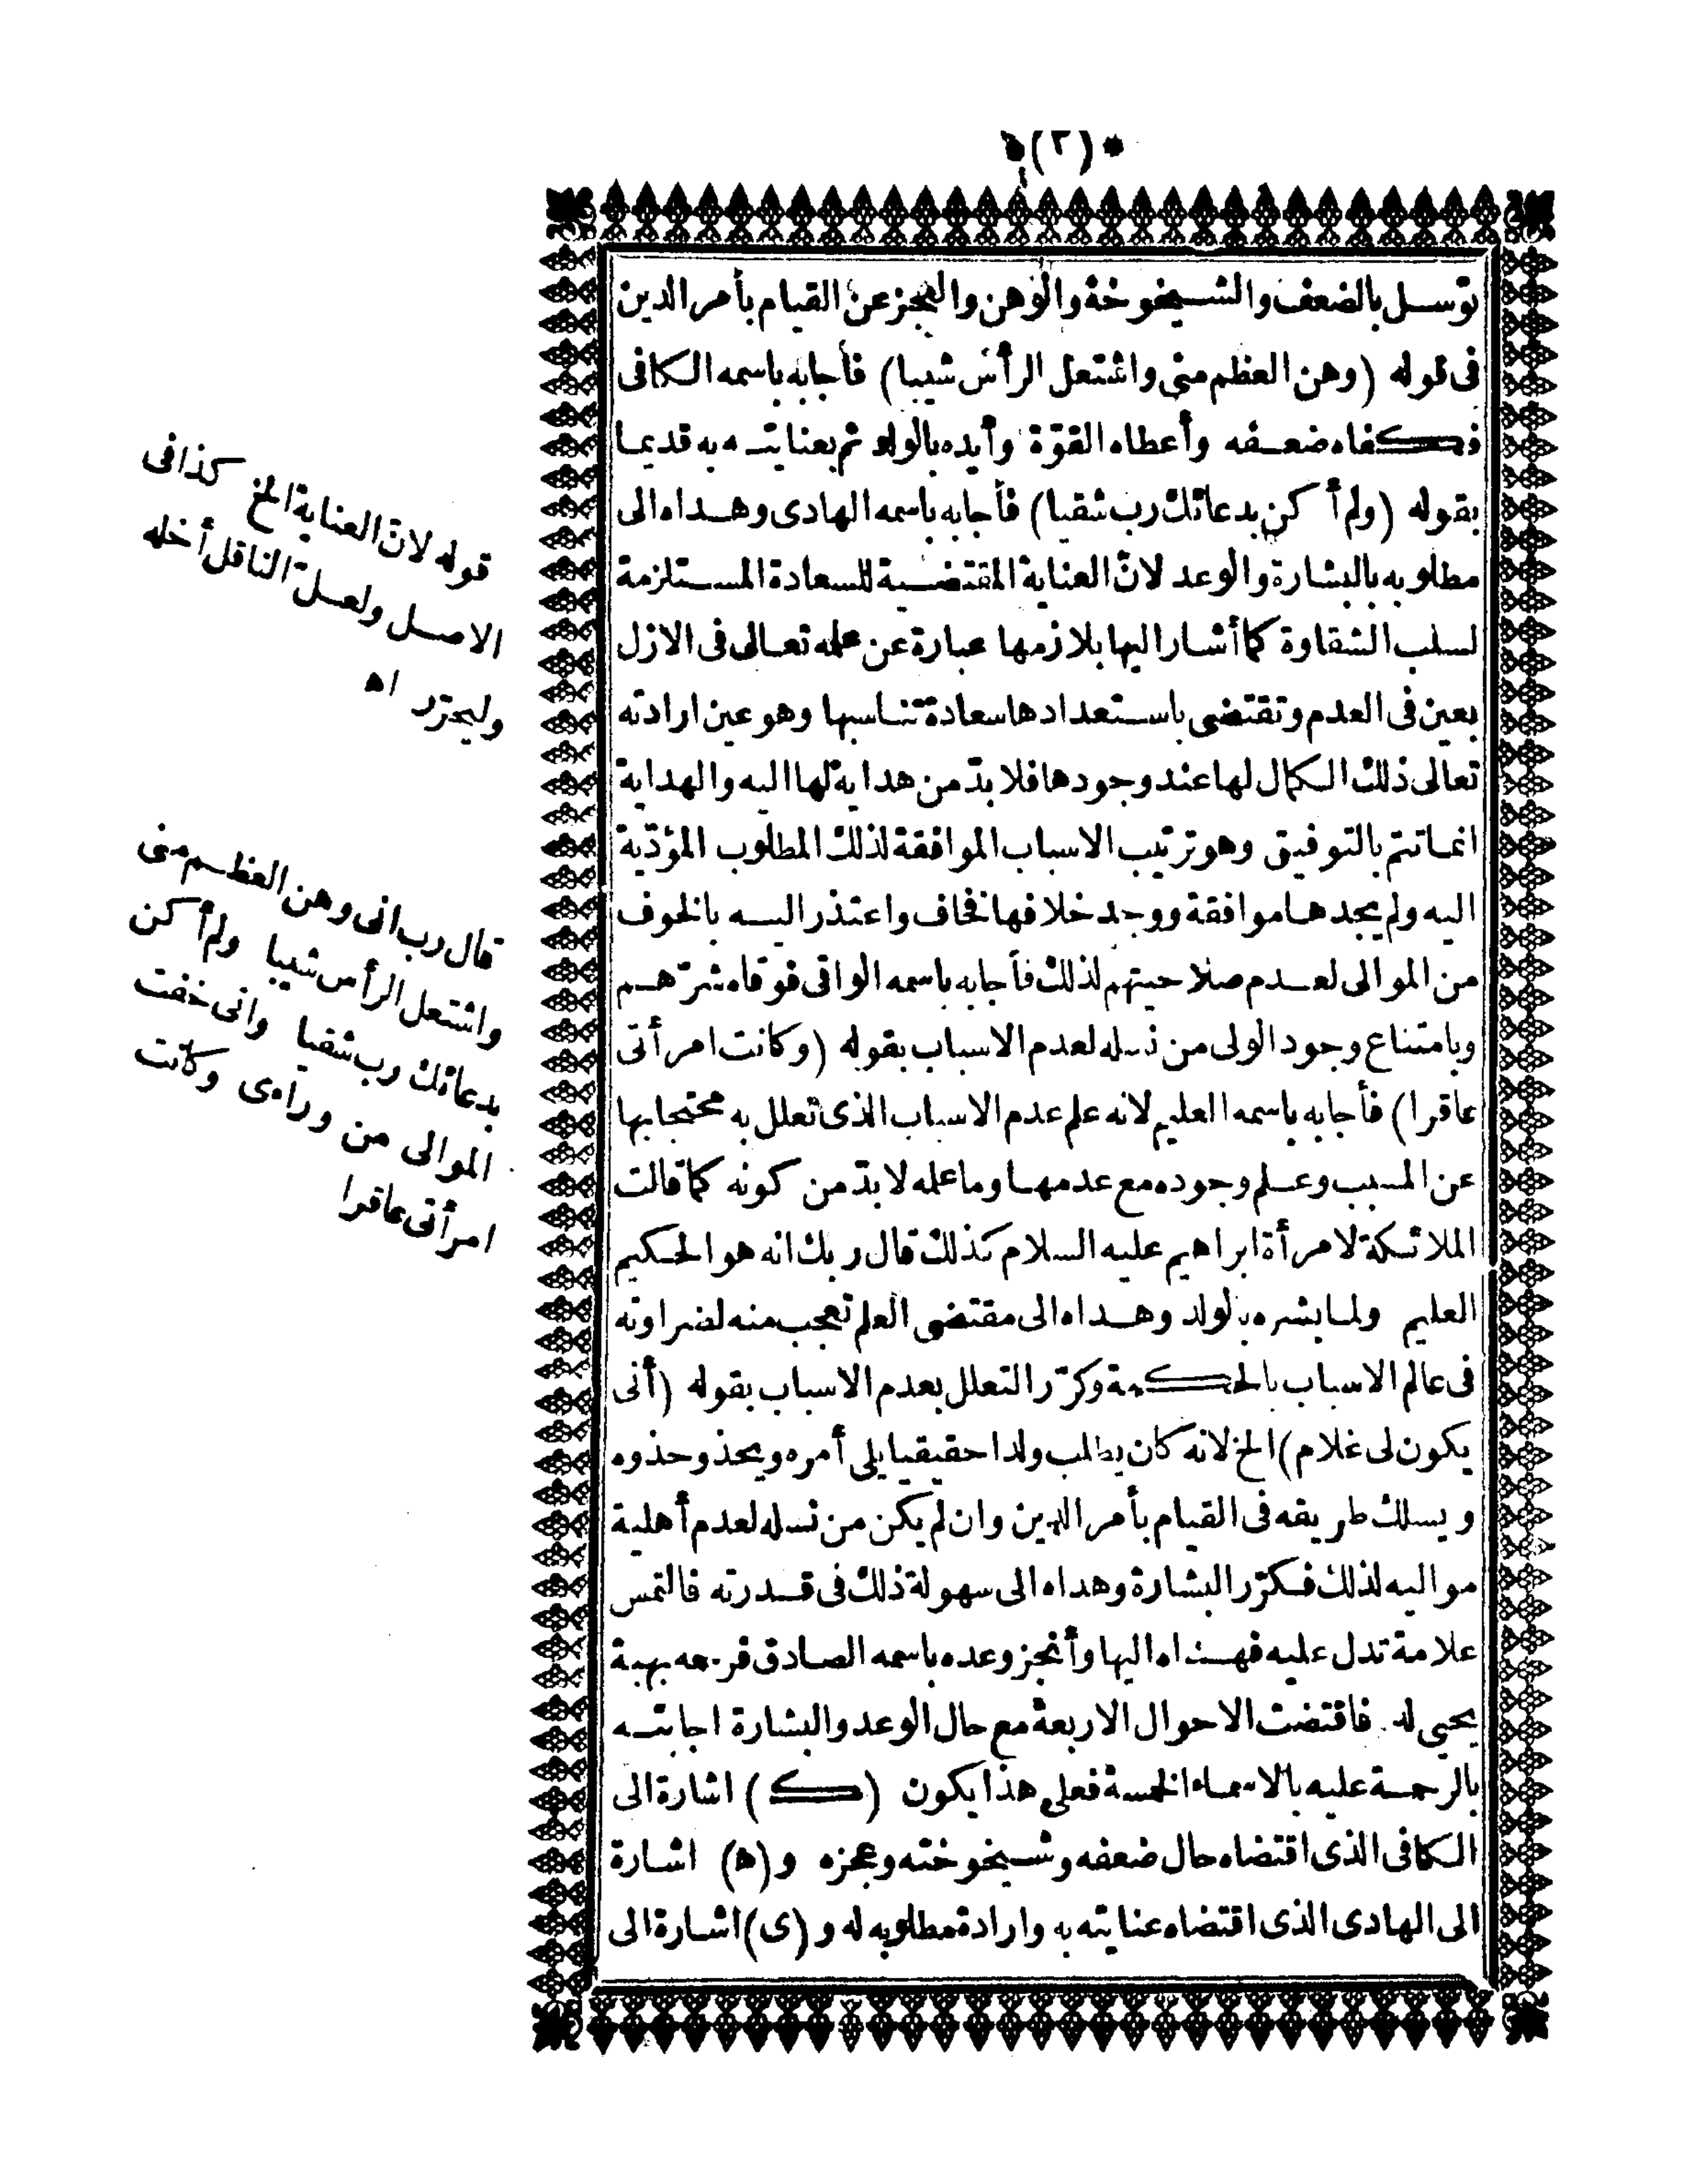 *(٣)*
توسل بالضعف والشيخوخة والوهن والعجز عن القيام بأمر الدين
فى قوله (وهن العظم منى واشتعل الرأس شيبا) فأجابه باسمه الكافى
فكفاه ضعفه وأعطاه القوّة وأيده بالولد ثم بعنايته به قديما
بقوله (ولم أكن بدعائك رب شقيا) فأجابه باسمه الهادى وهداه الى
مطلوبه بالبشارة والوعد لانّ العناية المقتضية للسعادة المستلزمة
لسلب الشقاوة كما أشار اليها بلازمها عبارة عن علمه تعالى فى الازل
بعين فى العدم وتقتضى باستعدادها سعادة تناسبها وهو عين ارادته
تعالى ذلك الكمال لها عند وجودها فلا بدّ من هداية لها اليه والهداية
انما تتم بالتوفيق وهو ترتيب الاسباب الموافقة لذلك المطلوب المؤدّية
اليه ولم يجدها موافقة ووجد خلافها فخاف واعتذر اليه بالخوف
من الموالى لعدم صلاحيتهم لذلك فأجابه باسمه الواقى فوقاه شرّهم
وبامتناع وجود الولى من نسله لعدم الاسباب بقوله (وكانت امرأتى
عاقرا) فأجابه باسمه العليم لانه علم عدم الاسباب الذى تعلل به محتجابها
عن المسبب وعلم وجوده مع عدمها وما علمه لا بدّ من كونه كما قالت
الملائكة لامرأة ابراهيم عليه السلام كذلك قال ربك انه هو الحكيم
العليم ولما بشره بالولد وهداه الى مقتضى العلم تعجب منه لضراوته
فى عالم الاسباب بالحكمة وكرّر التعلل بعدم الاسباب بقوله (أنى
يكون لى غلام) الخ لانه كان يطلب ولدا حقيقيا يلى أمره ويحذو حذوه
ويسلك طريقه فى القيام بأمر الدين وان لم يكن من نسله لعدم أهلية
مواليه لذلك فكرّر البشارة وهداه الى سهولة ذلك فى قدرته فالتمس
علامة تدل عليه فهداه اليها وأنجز وعده باسمه الصادق فرحمه بهبة
يحيى له فاقتضت الاحوال الاربعة مع حال الوعد والبشارة اجابته
بالرحمة عليه بالاسماء الخمسة فعلى هذا يكون (ك) اشارة الى
الكافى الذى اقتضاه حال ضعفه وشيخوخته وعجزه و(ه) اشارة
الى الهادى الذى اقتضاه عنايته به وارادة مطلوبه له و(ى) اشارة الى
قوله لانّ العناية الخ كذا فى
الاصل ولعلّ الناقل أخله
وليحرّر اه
قال رب انى وهن العظم منى
واشتعل الرأس شيبا ولم أكن
بدعائك رب شقيا وانى خفت
الموالى من وراءى وكانت
امرأتى عاقرا